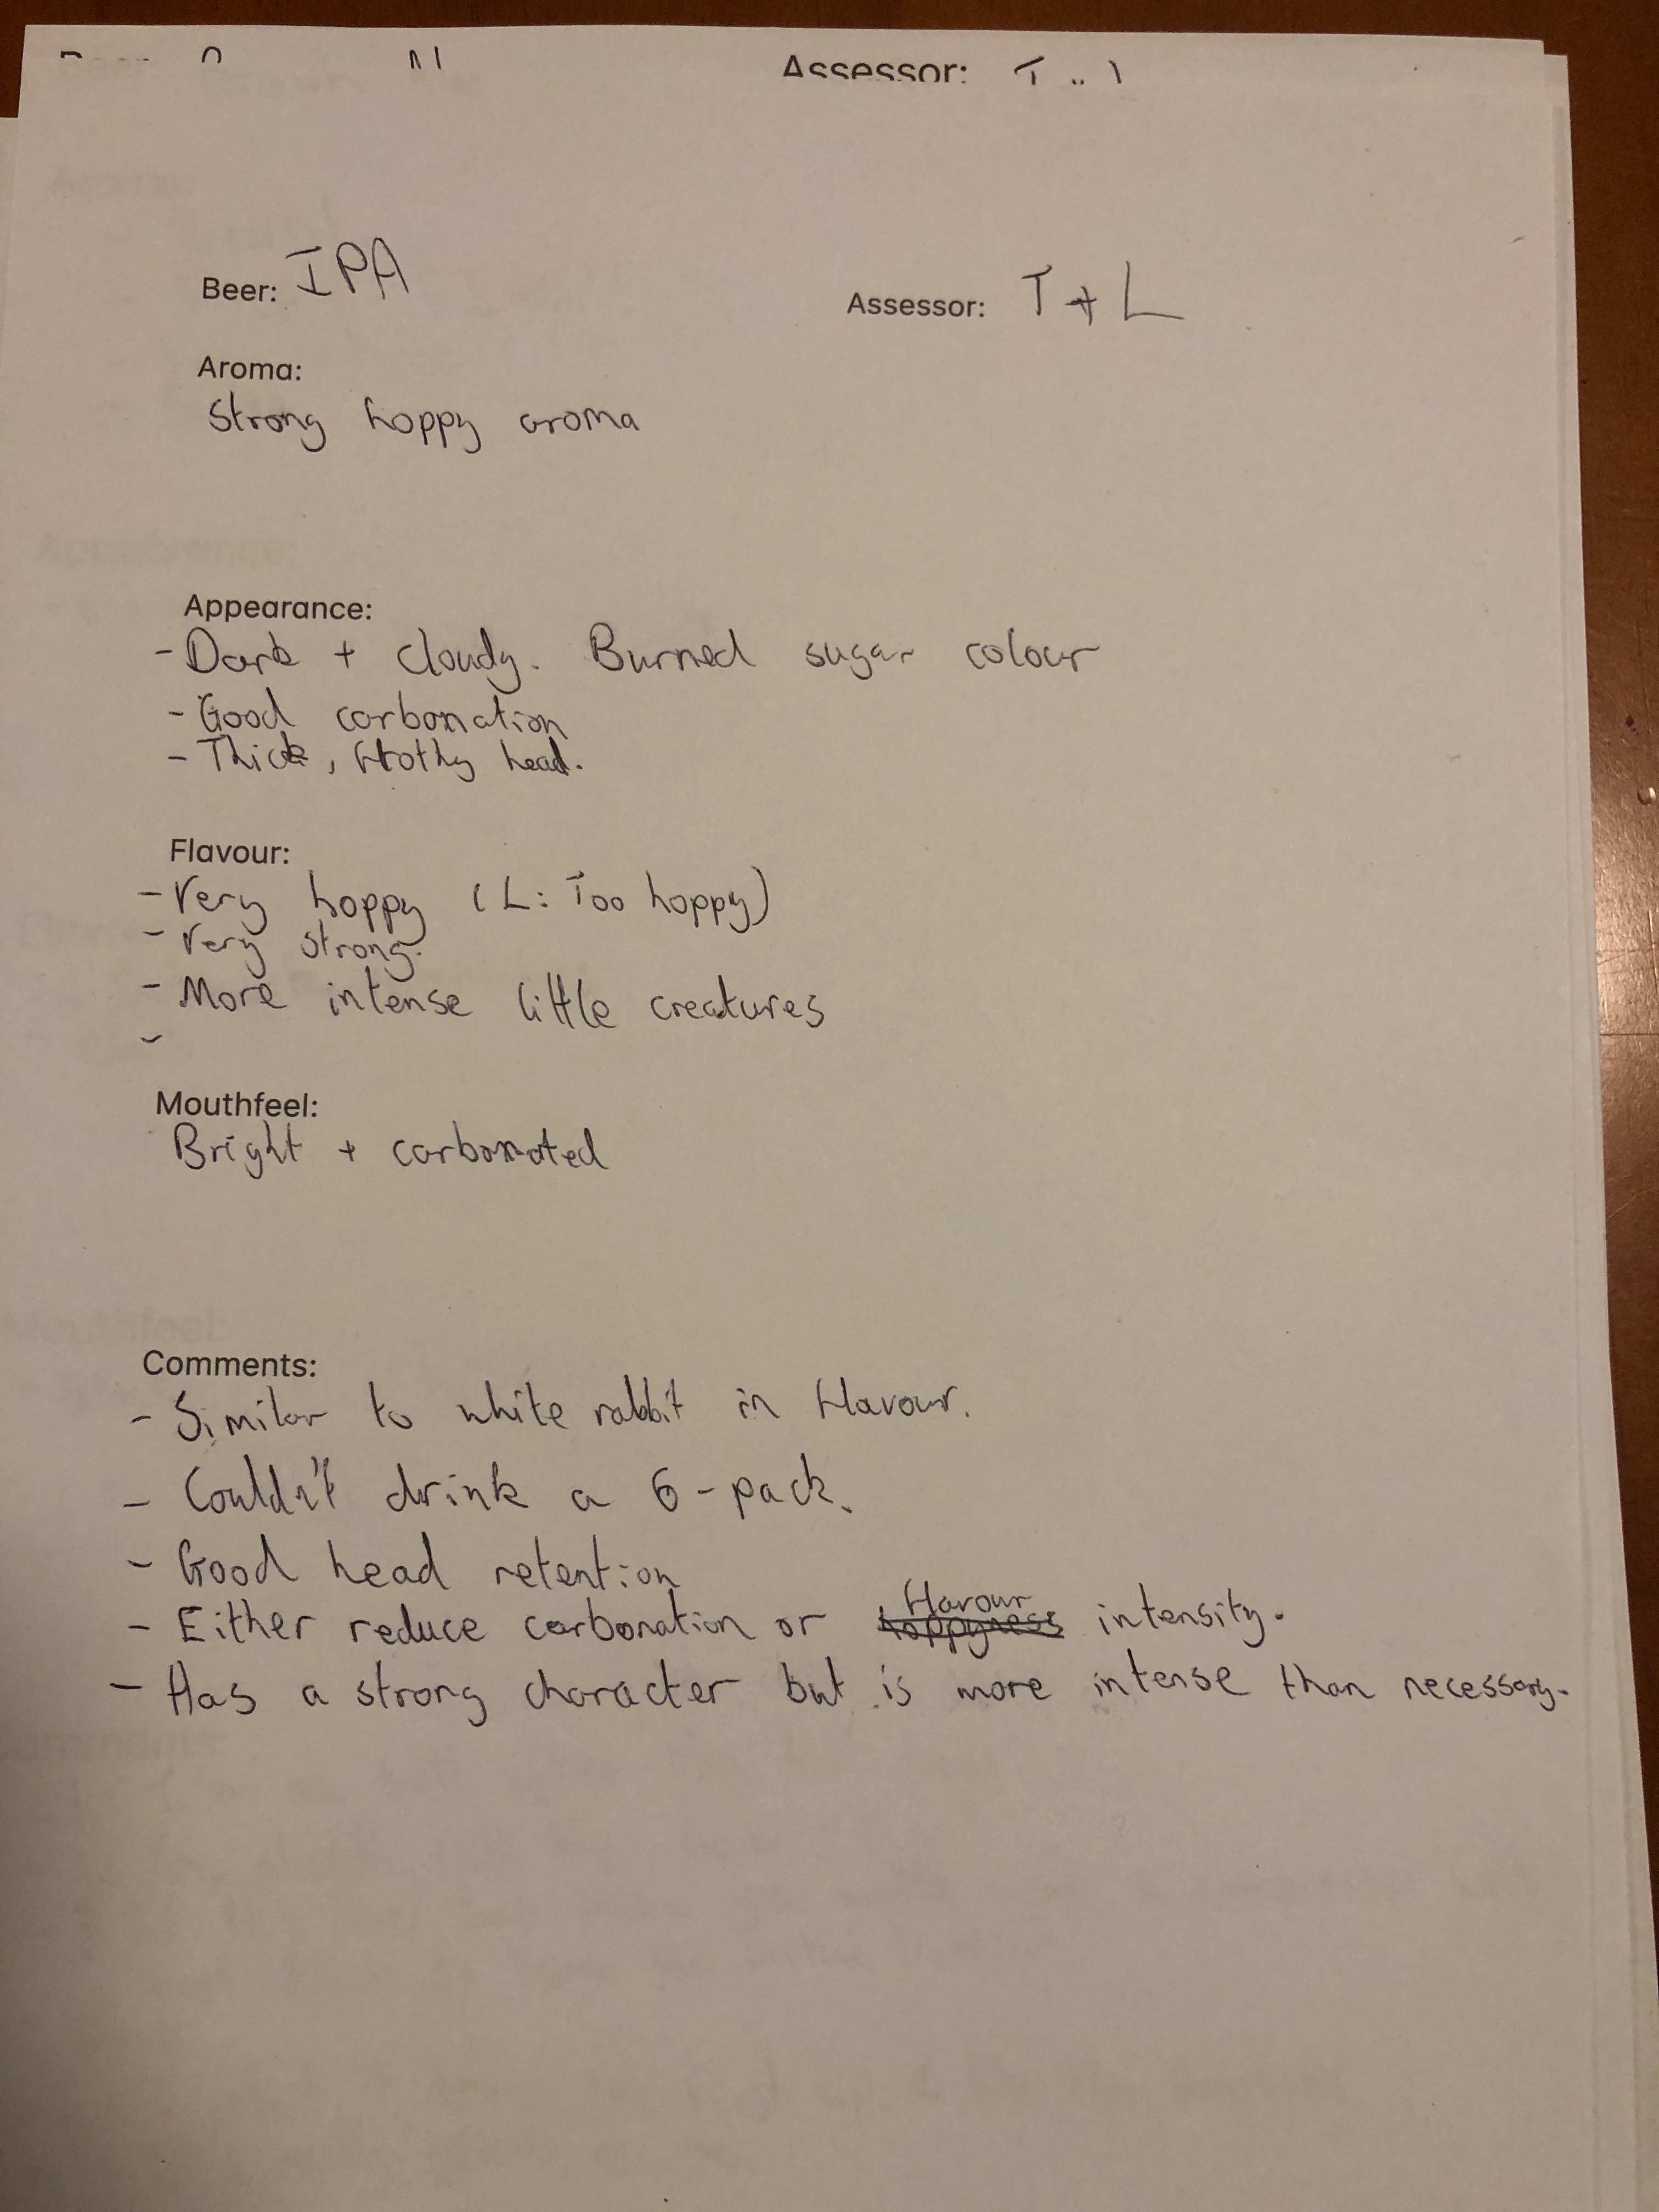 Assessor:
Beer: IPA Assessor: T + L
Aroma:
Strong hoppy aroma
Appearance:
- Dark + cloudy. Burned sugar colour
- Good carbonation
- Thick, frothy head.
Flavour:
- Very hoppy (L: Too hoppy)
- Very strong.
- More intense little creatures
-
Mouthfeel:
Bright + carbonated
Comments:
- Similar to white rabbit in flavour.
- Couldn't drink a 6-pack.
- Good head retention
- Either reduce carbonation or hoppyness flavour intensity.
- Has a strong character but is more intense than necessary.